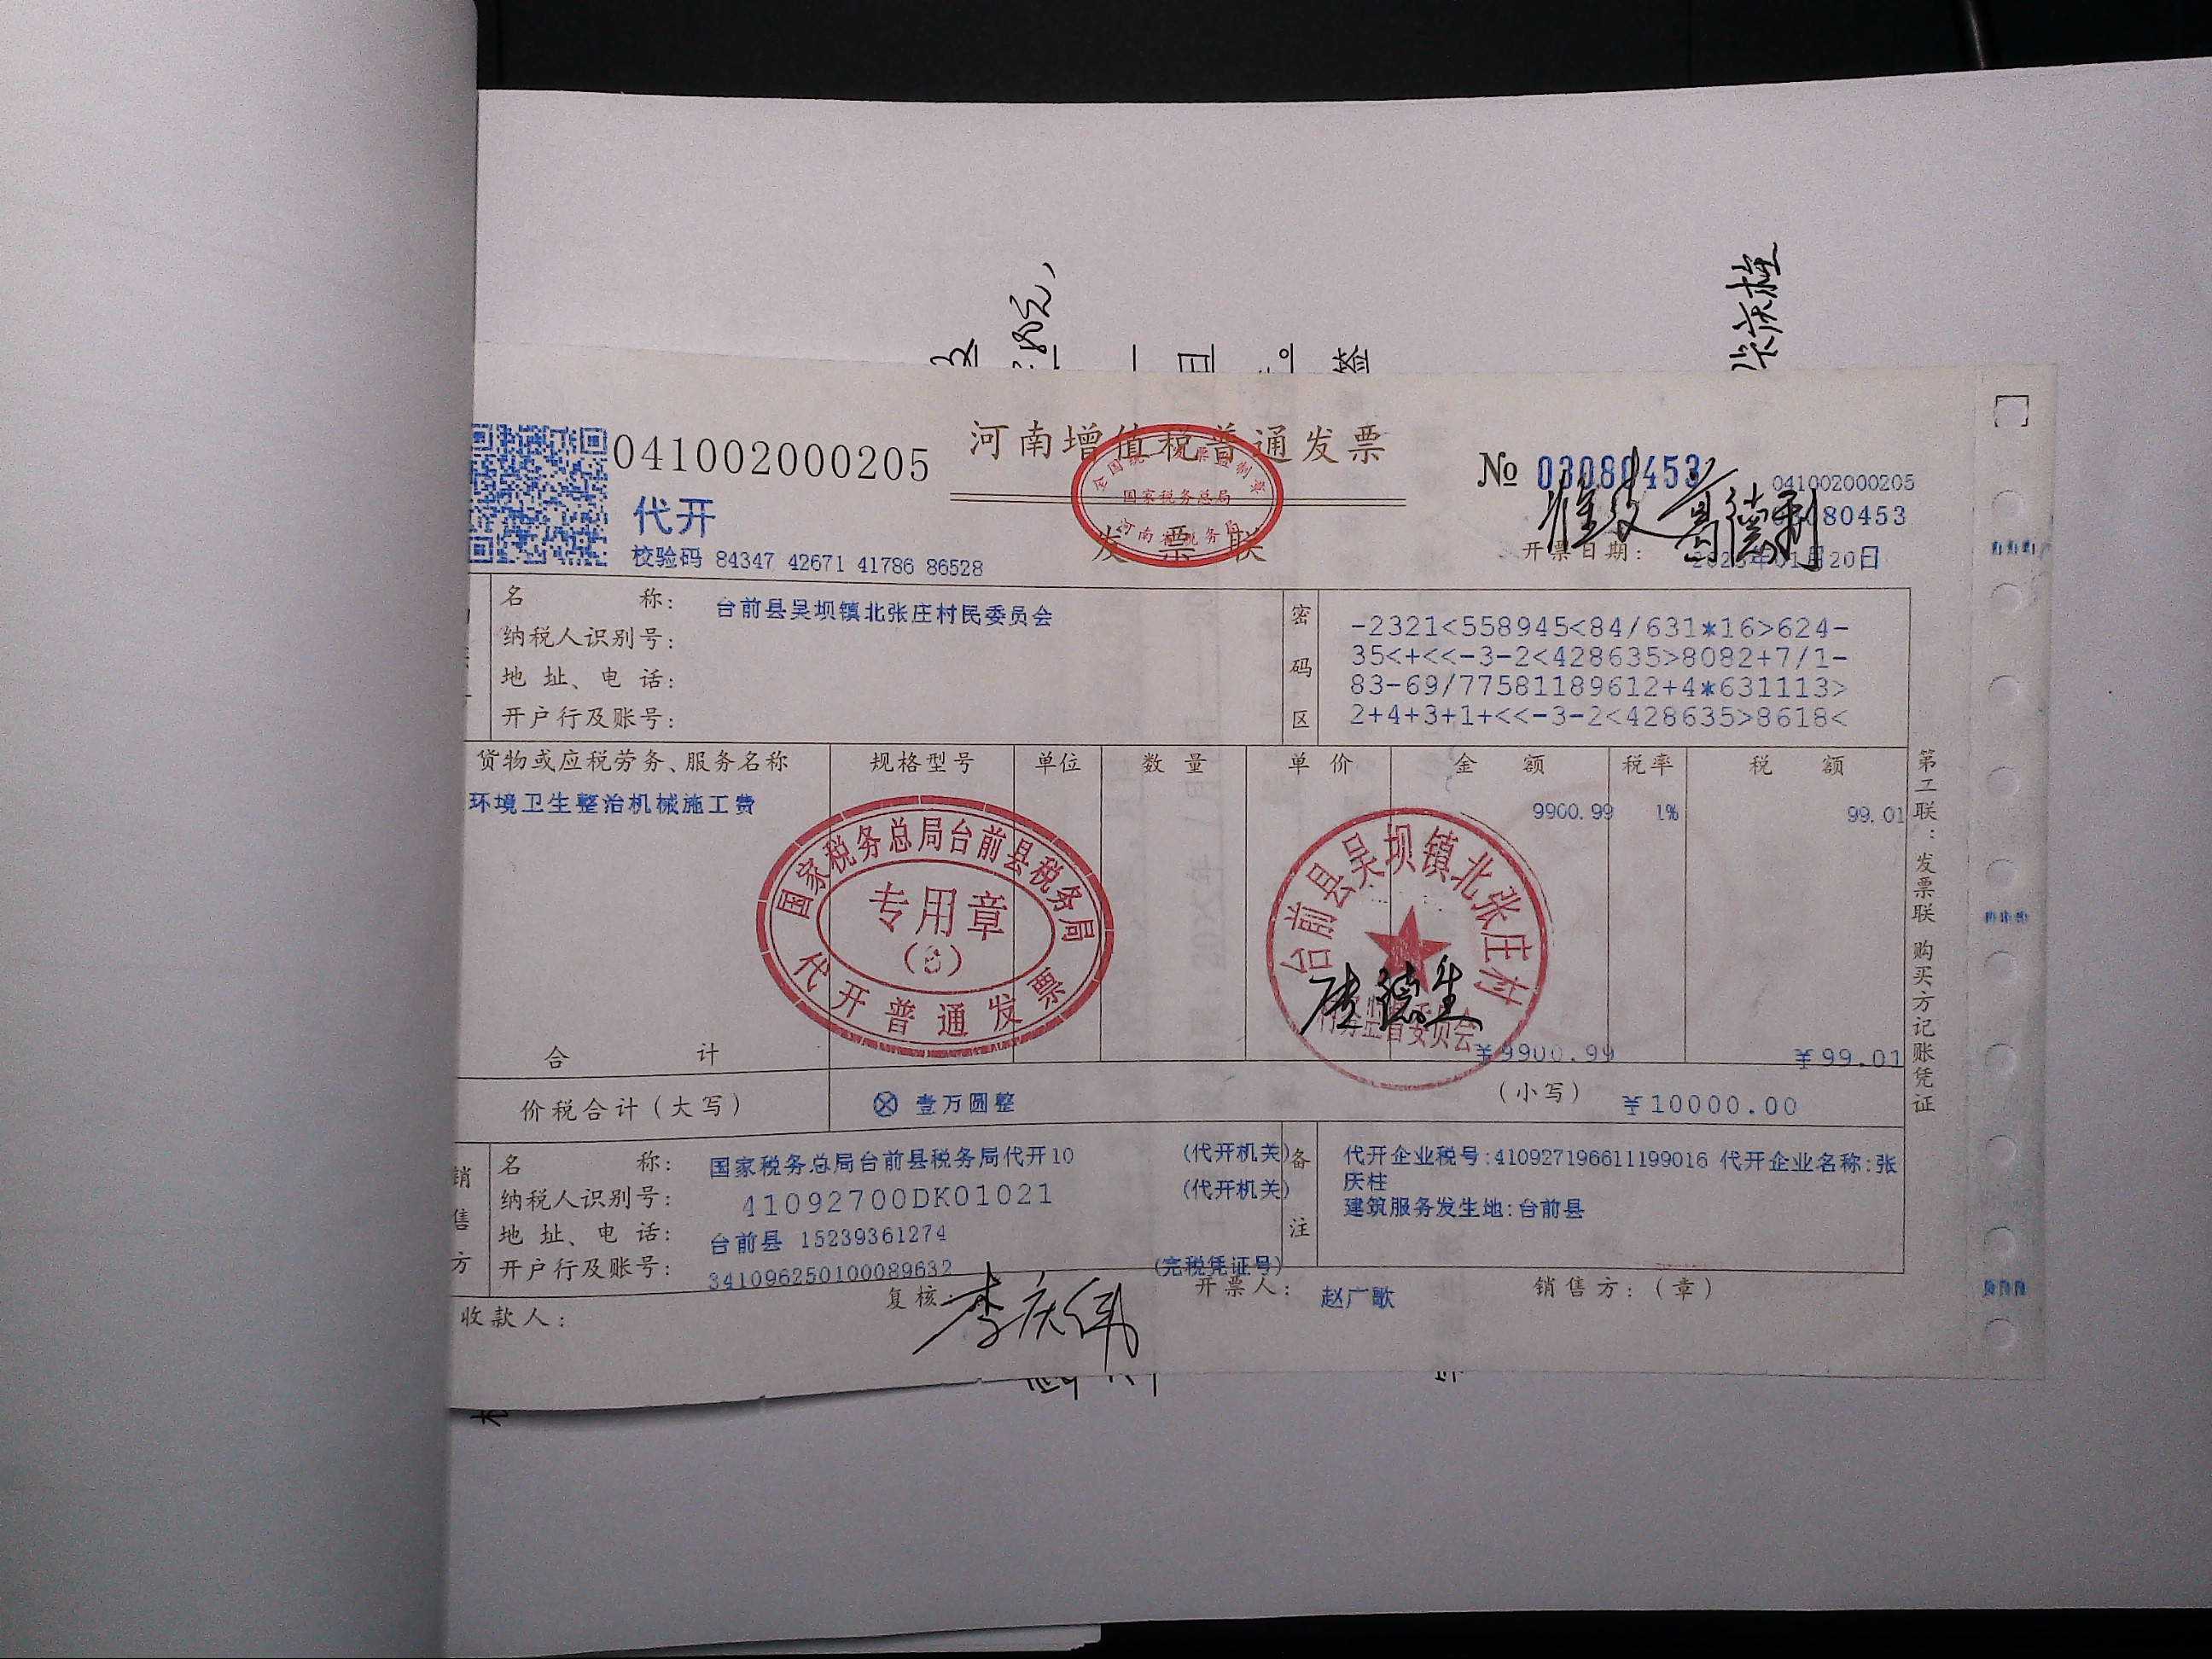 张庆柱
签
河南增值税普通发票
041002000205
代开
校验码 84347 42671 41786 86528
全国统一发票监制章
国家税务总局
河南省税务局
发票联
№ 03080453
041002000205
03080453
开票日期: 2023年01月20日
葛德利
名 称: 台前县吴坝镇北张庄村民委员会
纳税人识别号:
地 址、电 话:
开户行及账号:
密码区
-2321<558945<84/631*16>624-
35<+<<-3-2<428635>8082+7/1-
83-69/77581189612+4*631113>
2+4+3+1+<<-3-2<428635>8618<
货物或应税劳务、服务名称 规格型号 单位 数 量 单 价 金 额 税率 税 额
环境卫生整治机械施工费 9900.99 1% 99.01
国家税务总局台前县税务局
专用章
代开普通发票
台前县吴坝镇北张庄村
村务监督委员会
合 计 ¥9900.99 ¥99.01
价税合计(大写) ⊗ 壹万圆整 (小写) ¥10000.00
销售方
名 称: 国家税务总局台前县税务局代开10 (代开机关)
纳税人识别号: 41092700DK01021 (代开机关)
地 址、电 话: 台前县 15239361274
开户行及账号: 341096250100089632 (完税凭证号)
备注
代开企业税号:410927196611199016 代开企业名称:张
庆柱
建筑服务发生地:台前县
收款人: 复核: 李庆伟 开票人: 赵广歌 销售方:(章)
第二联:发票联 购买方记账凭证